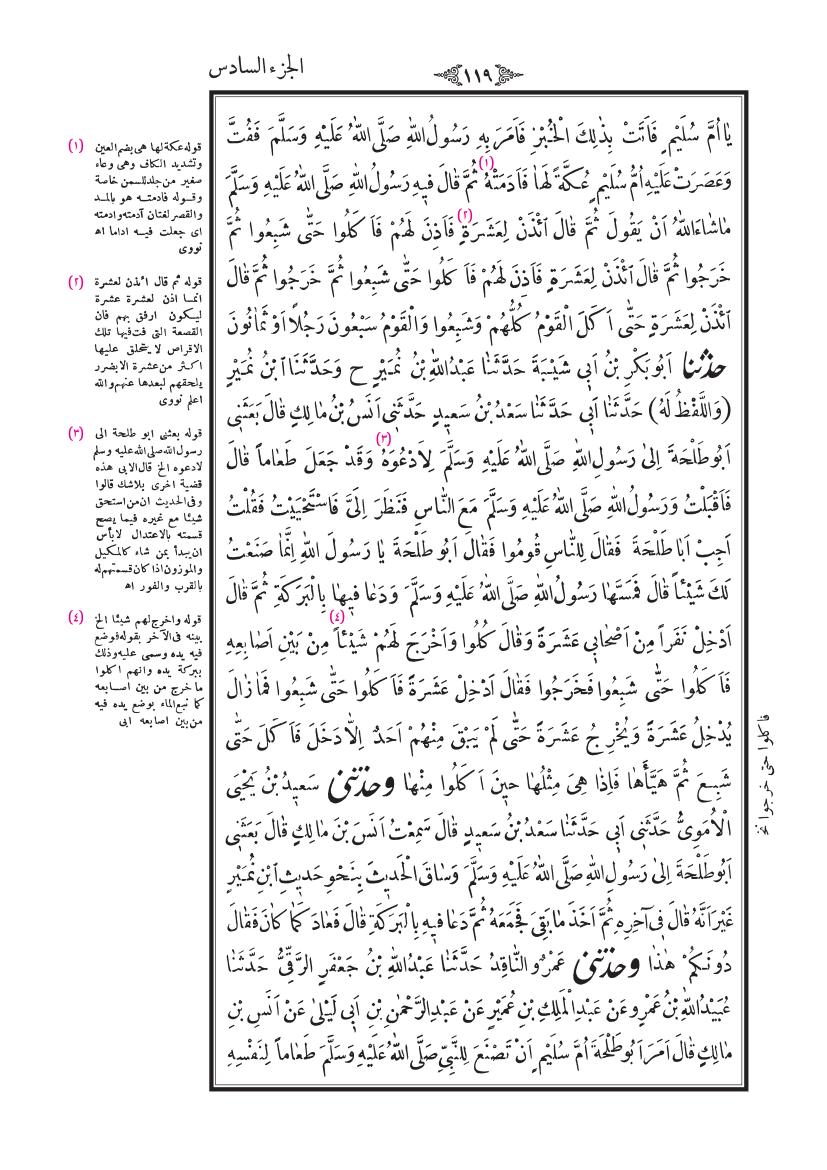 ١١٩
الجزء السادس
يٰا اُمَّ سُلَيْمٍ فَاَتَتْ بِذٰلِكَ الْخُبْزِ فَاَمَرَ بِهِ رَسُولُ اللهِ صَلَّى اللهُ عَلَيْهِ وَسَلَّمَ فَفُتَّ
وَعَصَرَتْ عَلَيْهِ اُمُّ سُلَيْمٍ عُكَّةً لَهٰا فَاَدَمَتْهُ (١) ثُمَّ قٰالَ فِيهِ رَسُولُ اللهِ صَلَّى اللهُ عَلَيْهِ وَسَلَّمَ
مٰا شٰاءَ اللهُ اَنْ يَقُولَ ثُمَّ قٰالَ ائْذَنْ لِعَشَرَةٍ (٢) فَاَذِنَ لَهُمْ فَاَكَلُوا حَتّٰى شَبِعُوا ثُمَّ
خَرَجُوا ثُمَّ قٰالَ ائْذَنْ لِعَشَرَةٍ فَاَذِنَ لَهُمْ فَاَكَلُوا حَتّٰى شَبِعُوا ثُمَّ خَرَجُوا ثُمَّ قٰالَ
ائْذَنْ لِعَشَرَةٍ حَتّٰى اَكَلَ الْقَوْمُ كُلُّهُمْ وَشَبِعُوا وَالْقَوْمُ سَبْعُونَ رَجُلاً اَوْ ثَمٰانُونَ
حدثنا اَبُو بَكْرِ بْنُ اَبِي شَيْبَةَ حَدَّثَنٰا عَبْدُ اللهِ بْنُ نُمَيْرٍ ح وَحَدَّثَنَا ابْنُ نُمَيْرٍ
(وَاللَّفْظُ لَهُ) حَدَّثَنٰا اَبِي حَدَّثَنٰا سَعْدُ بْنُ سَعِيدٍ حَدَّثَنِي اَنَسُ بْنُ مٰالِكٍ قٰالَ بَعَثَنِي
اَبُو طَلْحَةَ اِلىٰ رَسُولِ اللهِ صَلَّى اللهُ عَلَيْهِ وَسَلَّمَ لِاَدْعُوَهُ (٣) وَقَدْ جَعَلَ طَعٰاماً قٰالَ
فَاَقْبَلْتُ وَرَسُولُ اللهِ صَلَّى اللهُ عَلَيْهِ وَسَلَّمَ مَعَ النّٰاسِ فَنَظَرَ اِلَيَّ فَاسْتَحْيَيْتُ فَقُلْتُ
اَجِبْ اَبٰا طَلْحَةَ فَقٰالَ لِلنّٰاسِ قُومُوا فَقٰالَ اَبُو طَلْحَةَ يٰا رَسُولَ اللهِ اِنَّمٰا صَنَعْتُ
لَكَ شَيْئاً قٰالَ فَمَسَّهٰا رَسُولُ اللهِ صَلَّى اللهُ عَلَيْهِ وَسَلَّمَ وَدَعٰا فِيهٰا بِالْبَرَكَةِ ثُمَّ قٰالَ
اَدْخِلْ نَفَراً مِنْ اَصْحٰابِي عَشَرَةً وَقٰالَ كُلُوا وَاَخْرَجَ لَهُمْ شَيْئاً (٤) مِنْ بَيْنِ اَصٰابِعِهِ
فَاَكَلُوا حَتّٰى شَبِعُوا فَخَرَجُوا فَقٰالَ اَدْخِلْ عَشَرَةً فَاَكَلُوا حَتّٰى شَبِعُوا فَمٰا زٰالَ
يُدْخِلُ عَشَرَةً وَيُخْرِجُ عَشَرَةً حَتّٰى لَمْ يَبْقَ مِنْهُمْ اَحَدٌ اِلاّٰ دَخَلَ فَاَكَلَ حَتّٰى
شَبِعَ ثُمَّ هَيَّأَهٰا فَاِذٰا هِيَ مِثْلُهٰا حِينَ اَكَلُوا مِنْهٰا وحدثنى سَعِيدُ بْنُ يَحْيَى
الْاُمَوِيُّ حَدَّثَنِي اَبِي حَدَّثَنٰا سَعْدُ بْنُ سَعِيدٍ قٰالَ سَمِعْتُ اَنَسَ بْنَ مٰالِكٍ قٰالَ بَعَثَنِي
اَبُو طَلْحَةَ اِلىٰ رَسُولِ اللهِ صَلَّى اللهُ عَلَيْهِ وَسَلَّمَ وَسٰاقَ الْحَدِيثَ بِنَحْوِ حَدِيثِ ابْنِ نُمَيْرٍ
غَيْرَ اَنَّهُ قٰالَ فِي آخِرِهِ ثُمَّ اَخَذَ مٰا بَقِيَ فَجَمَعَهُ ثُمَّ دَعٰا فِيهِ بِالْبَرَكَةِ قٰالَ فَعٰادَ كَمٰا كٰانَ فَقٰالَ
دُونَكُمْ هٰذٰا وحدثنى عَمْرٌو النّٰاقِدُ حَدَّثَنٰا عَبْدُ اللهِ بْنُ جَعْفَرٍ الرَّقِّيُّ حَدَّثَنٰا
عُبَيْدُ اللهِ بْنُ عَمْرٍو عَنْ عَبْدِ الْمَلِكِ بْنِ عُمَيْرٍ عَنْ عَبْدِ الرَّحْمٰنِ بْنِ اَبِي لَيْلىٰ عَنْ اَنَسِ بْنِ
مٰالِكٍ قٰالَ اَمَرَ اَبُو طَلْحَةَ اُمَّ سُلَيْمٍ اَنْ تَصْنَعَ لِلنَّبِيِّ صَلَّى اللهُ عَلَيْهِ وَسَلَّمَ طَعٰاماً لِنَفْسِهِ
فاكلوا حتى خرجوا نخ
(١) قوله عكة لها هى بضم العين
وتشديد الكاف وهى وعاء
صغير من جلد للسمن خاصة
وقوله فادمته هو بالمد
والقصر لغتان آدمته وادمته
اى جعلت فيه اداما اه
نووى
(٢) قوله ثم قال ائذن لعشرة
انما اذن لعشرة عشرة
ليكون ارفق بهم فان
القصعة التى فت فيها تلك
الاقراص لا يتحلق عليها
اكثر من عشرة الابضرر
يلحقهم لبعدها عنهم والله
اعلم نووى
(٣) قوله بعثنى ابو طلحة الى
رسول الله صلى الله عليه وسلم
لادعوه الخ قال الابى هذه
قضية اخرى بلاشك قالوا
وفى الحديث ان من استحق
شيئا مع غيره فيما يصح
قسمته بالاعتدال لابأس
ان يبدأ بمن شاء كالمكيل
والموزون اذا كان قسمتهم له
بالقرب والفور اه
(٤) قوله واخرج لهم شيئا الخ
بينه فى الآخر بقوله فوضع
فيه يده وسمى عليه وذلك
ببركة يده وانهم اكلوا
ما خرج من بين اصابعه
كما نبع الماء بوضع يده فيه
من بين اصابعه ابى